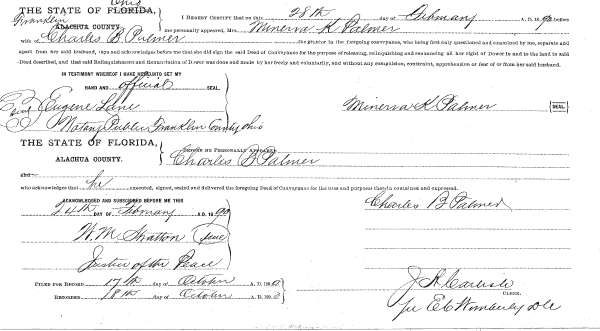 Ohio
THE STATE OF FLORIDA,
Franklin
ALACHUA COUNTY.
I HEREBY CERTIFY that on this 28th day of Febuary A. D. 1890 before
me personally appeared, Mrs. Minerva K Palmer
wife of Charles B Palmer the grantor in the foregoing conveyance, who being first duly questioned and examined by me, separate and
apart from her said husband, says and acknowledges before me that she did sign the said Deed of Conveyance for the purpose of releasing, relinquishing and renouncing all her right of Dower in and to the land in said
Deed described, and that said Relinquishment and Renunciation of Dower was done and made by her freely and voluntarily, and without any compulsion, constraint, apprehension or fear of or from her said husband.
IN TESTIMONY WHEREOF I HAVE HEREUNTO SET MY
HAND AND official SEAL,
Eugene Lane
Notary Public Franklin County Ohio
Minerva K Palmer SEAL
THE STATE OF FLORIDA,
ALACHUA COUNTY.
BEFORE ME PERSONALLY APPEARED
Charles B Palmer
and
who acknowledges that he executed, signed, sealed and delivered the foregoing Deed of Conveyance for the uses and purposes therein contained and expressed.
ACKNOWLEDGED AND SUBSCRIBED BEFORE ME THIS
24th DAY OF Febuary A. D. 1890
Charles B Palmer
W. M. Stratton Seal
Justice of the Peace
FILED FOR RECORD 17th day of October A. D. 1890
RECORDED 18th day of October A. D. 1890
J A Carlisle
CLERK.
per E C Wimberly D C